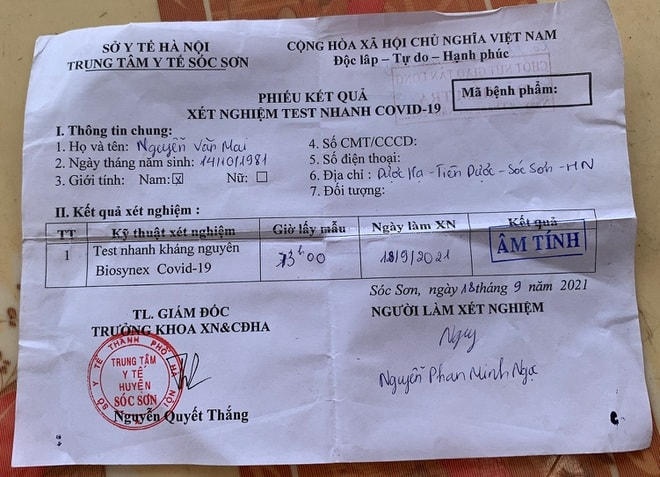 SỞ Y TẾ HÀ NỘI
TRUNG TÂM Y TẾ SÓC SƠN
CỘNG HÒA XÃ HỘI CHỦ NGHĨA VIỆT NAM
Độc lâp – Tự do – Hạnh phúc
PHIẾU KẾT QUẢ
XÉT NGHIỆM TEST NHANH COVID-19
Mã bệnh phẩm:
I. Thông tin chung:
1. Họ và tên: Nguyễn Văn Mai
2. Ngày tháng năm sinh: 14/10/1981
3. Giới tính: Nam: x Nữ:
4. Số CMT/CCCD:
5. Số điện thoại:
6. Địa chỉ : Dược Hạ - Tiên Dược - Sóc Sơn - HN
7. Đối tượng:
II. Kết quả xét nghiệm :
TT Kỹ thuật xét nghiệm Giờ lấy mẫu Ngày làm XN Kết quả
1 Test nhanh kháng nguyên Biosynex Covid-19 13h00 18/9/2021 ÂM TÍNH
Sóc Sơn, ngày 18 tháng 9 năm 2021
TL. GIÁM ĐỐC
TRƯỞNG KHOA XN&CĐHA
NGƯỜI LÀM XÉT NGHIỆM
SỞ Y TẾ THÀNH PHỐ HÀ NỘI
TRUNG TÂM
Y TẾ
HUYỆN
SÓC SƠN
Nguyễn Quyết Thắng
Ngọc
Nguyễn Phan Minh Ngọc